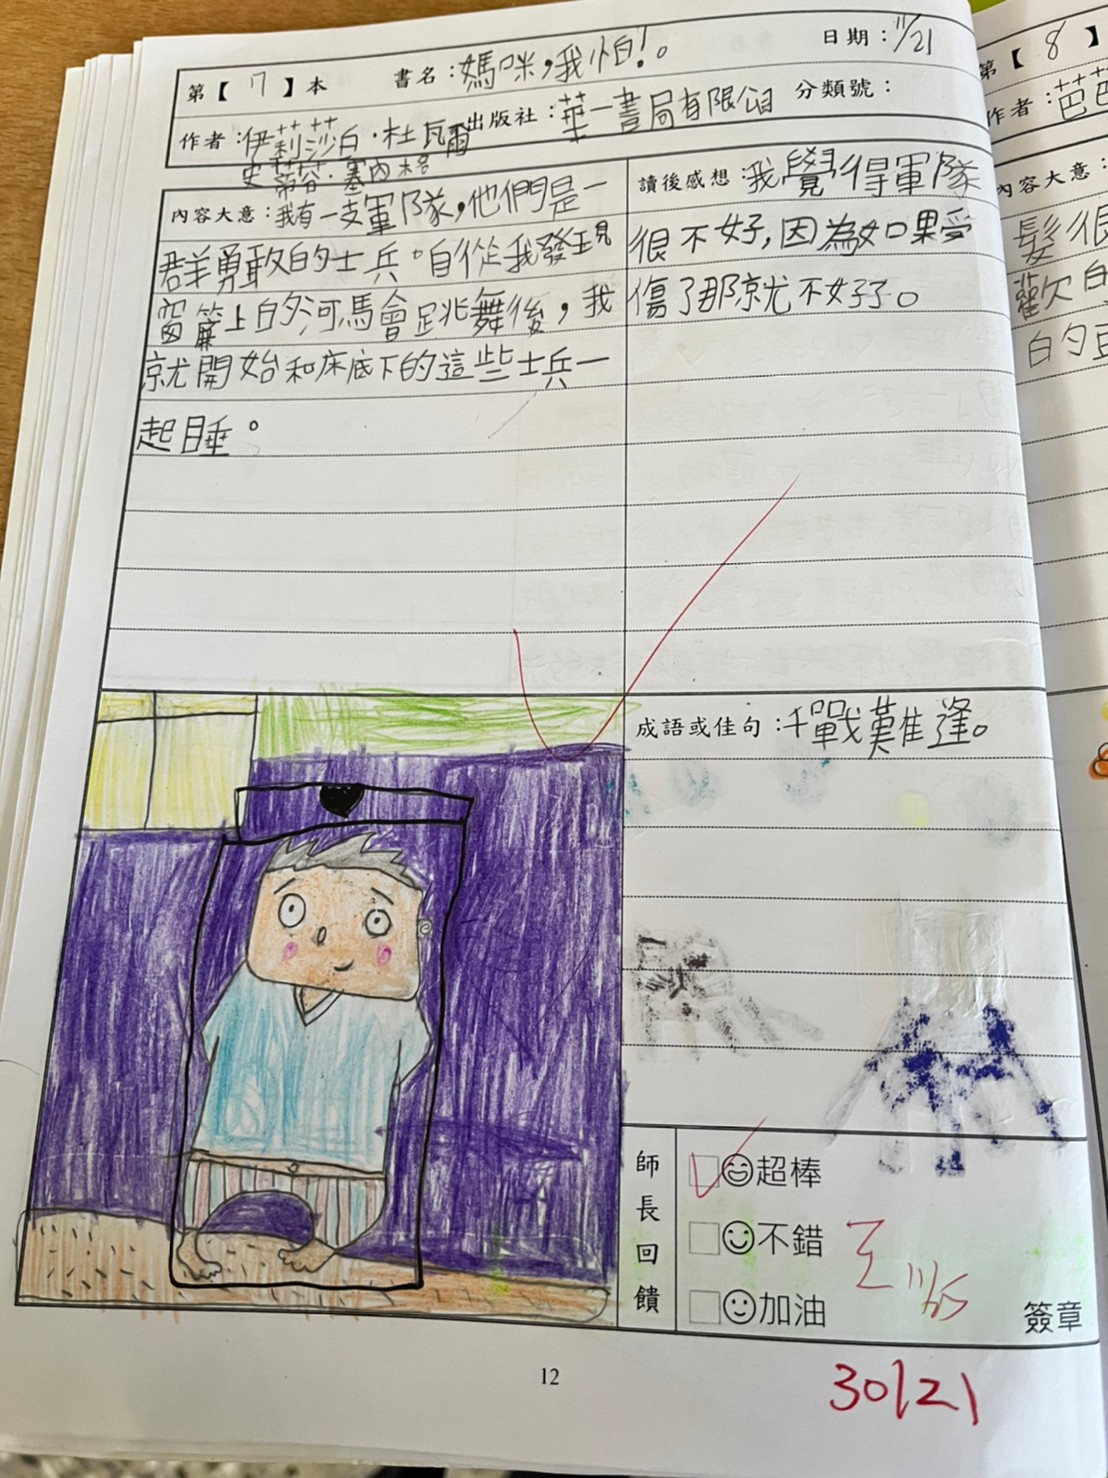 第【 7 】本 書名：媽咪，我怕！。 日期：11/21
作者：伊莉莎白·杜瓦爾 出版社：華一書局有限公司 分類號：
史蒂容·塞內格
內容大意：我有一支軍隊，他們是一
群勇敢的士兵。自從我發現
窗簾上的河馬會跳舞後，我
就開始和床底下的這些士兵一
起睡。
讀後感想：我覺得軍隊
很不好，因為如果受
傷了那就不好了。
成語或佳句：千戰難逢。
師長回饋
超棒
不錯
加油
簽章
12
30121
第【 8 】
作者：芭芭
內容大意：
髮很
歡的
白勺豆